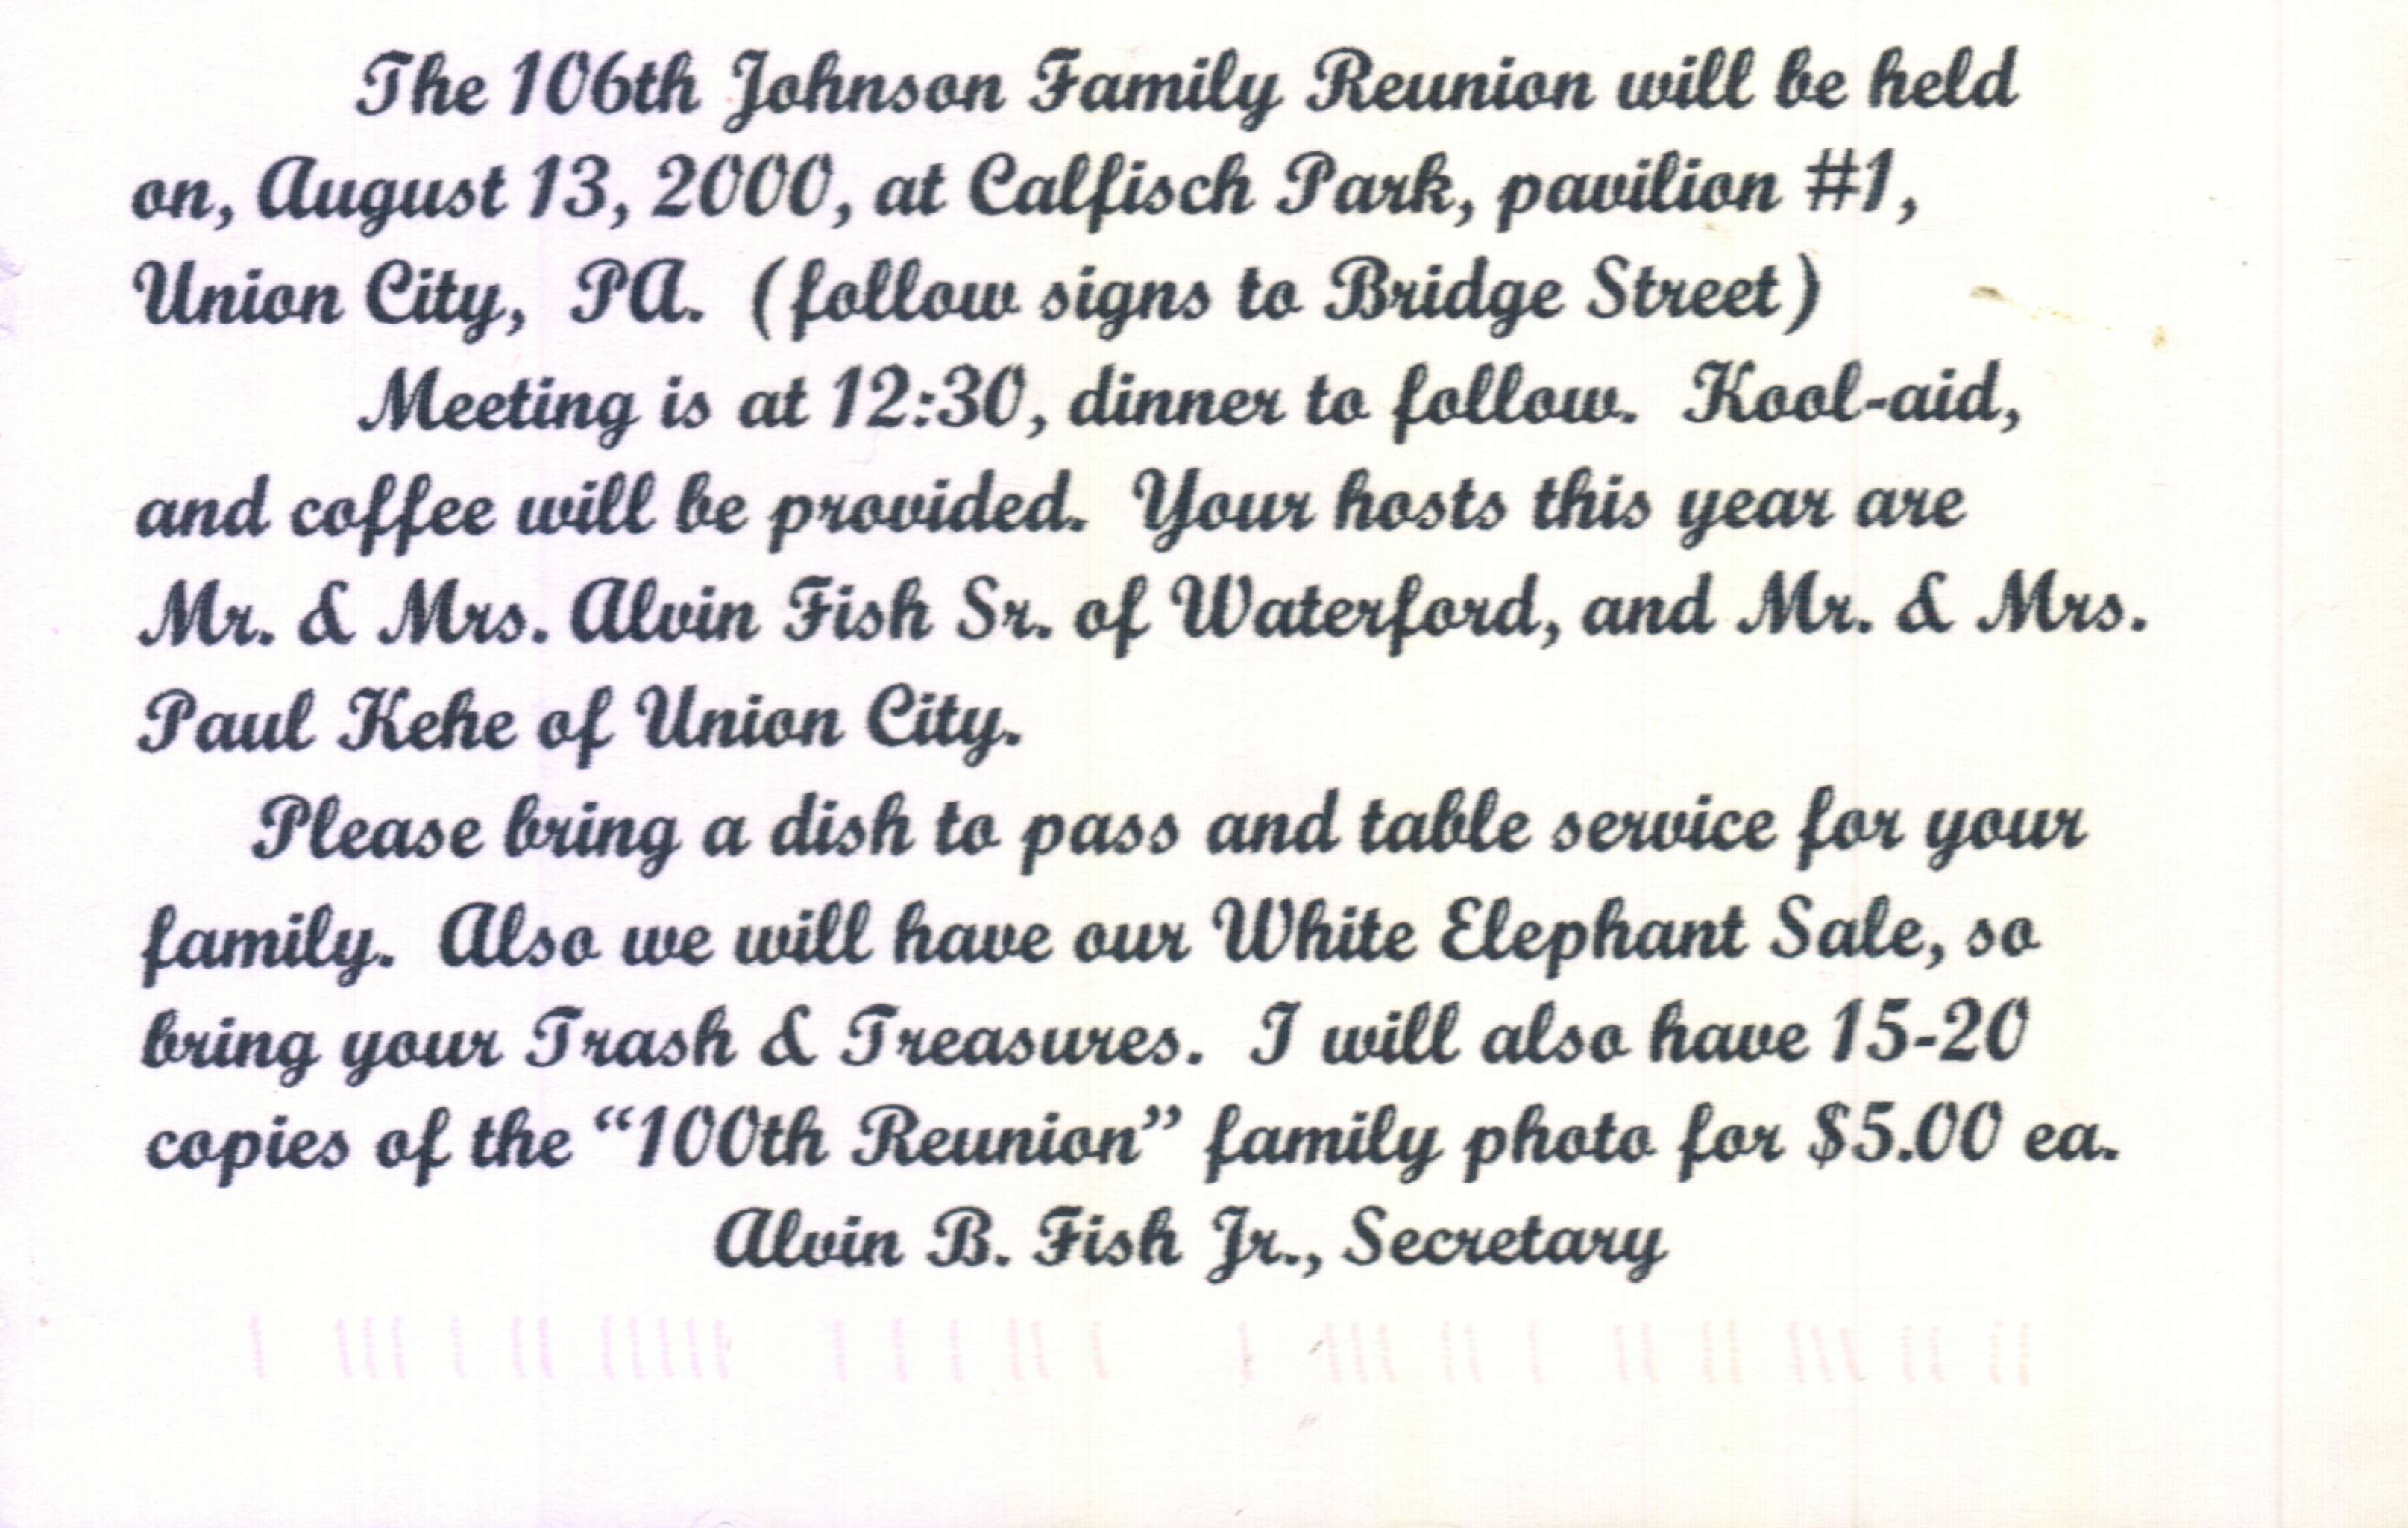 The 106th Johnson Family Reunion will be held
on, August 13, 2000, at Calfisch Park, pavilion #1,
Union City, PA. (follow signs to Bridge Street)
Meeting is at 12:30, dinner to follow. Kool-aid,
and coffee will be provided. Your hosts this year are
Mr. & Mrs. Alvin Fish Sr. of Waterford, and Mr. & Mrs.
Paul Kehe of Union City.
Please bring a dish to pass and table service for your
family. Also we will have our White Elephant Sale, so
bring your Trash & Treasures. I will also have 15-20
copies of the “100th Reunion” family photo for $5.00 ea.
Alvin B. Fish Jr., Secretary